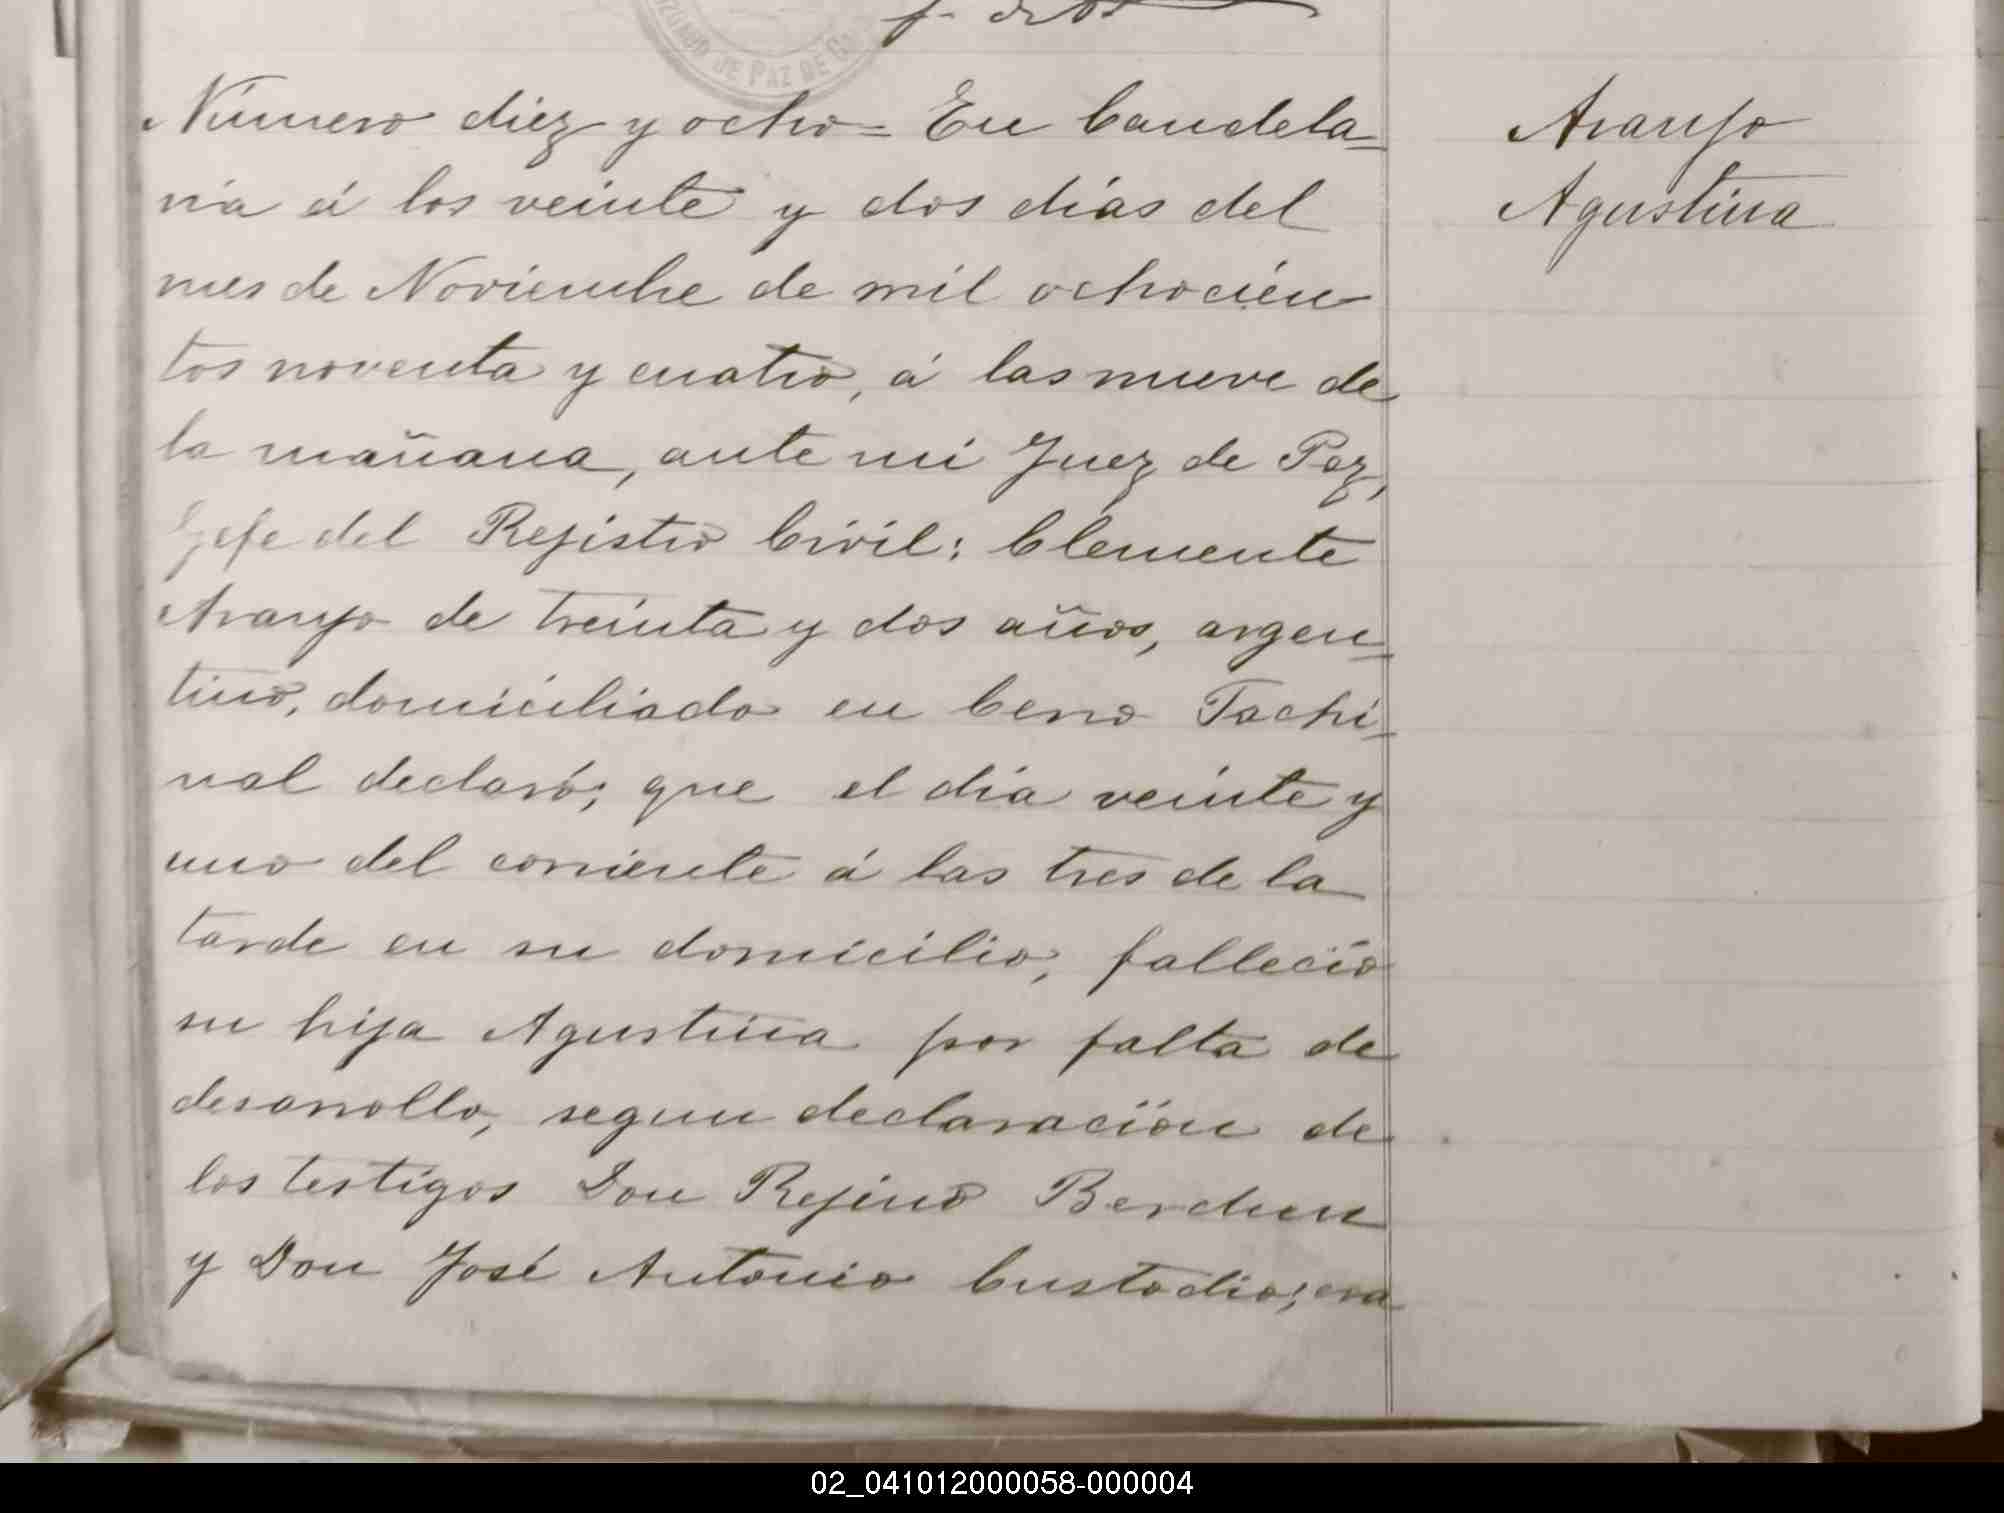 JUZGADO DE PAZ DE
Número diez y ocho = En Candela=
ria á los veinte y dos dias del
mes de Noviembre de mil ochocien
tos noventa y cuatro, á las nueve de
la mañana, ante mi Juez de Paz,
Gefe del Rejistro Civil; Clemente
Araujo de treinta y dos años, argen=
tino, domiciliado en Cerro Tachi=
ual declaró; que el dia veinte y
uno del corriente á las tres de la
tarde en su domicilio, falleció
su hija Agustina por falta de
desarrollo, segun declaración de
los testigos Don Rejino Berdun
y Don José Antonio Custodio; era
Araujo
Agustina
02_041012000058-000004